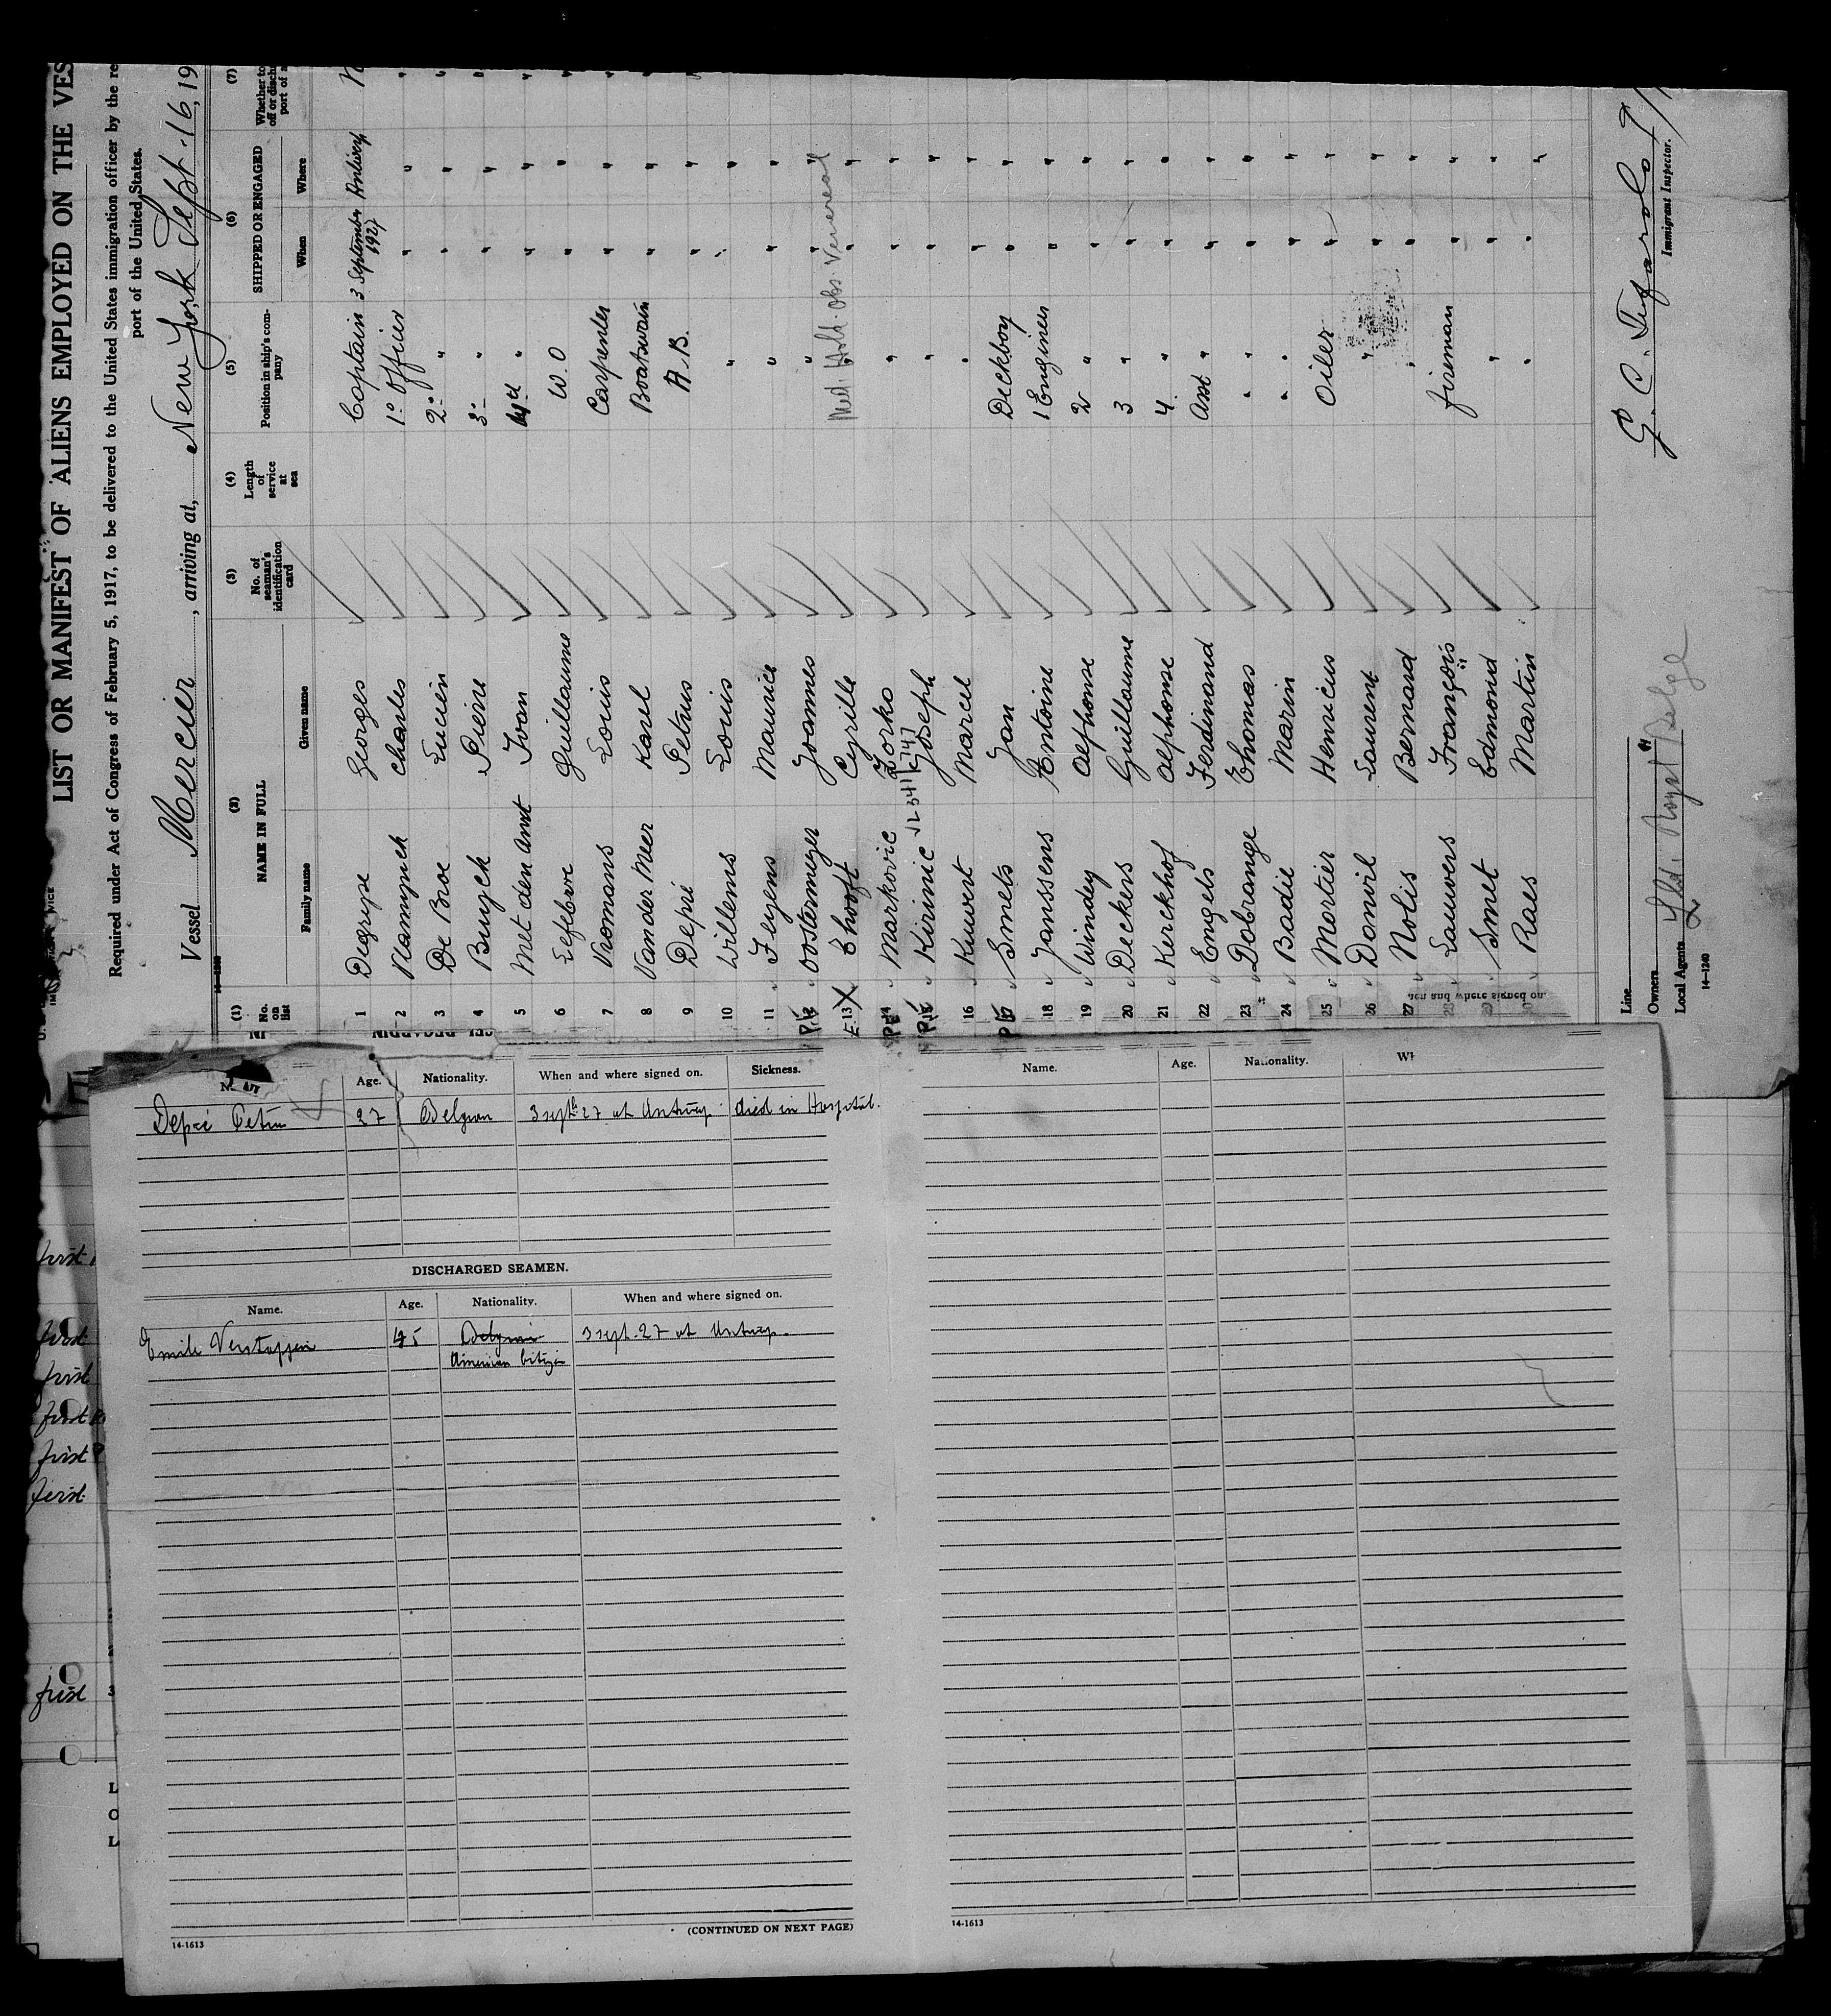 LIST OR MANIFEST OF ALIENS EMPLOYED ON THE VES
Required under Act of Congress of February 5, 1917, to be delivered to the United States immigration officer by the re
port of the United States.
Vessel Mercier, arriving at, New York Sept. 16, 19
(1) (2) (3) (4) (5) (6) (7)
No. on list NAME IN FULL No. of seaman's identification card Length of service at sea Position in ship's company SHIPPED OR ENGAGED Whether to off or disch port of a
Family name Given name When Where
1 Degryse Georges Captain 3 September 1927 Antwerp
2 Vlamynck Charles 1° Officer " "
3 De Broe Lucien 2° " " "
4 Buyck Pierre 3° " " "
5 Met den Anxt Ivan 4th " " "
6 Lefebvre Guillaume W.O " "
7 Vromans Louis Carpenter " "
8 Van der Meer Karel Boatswain " "
9 Depré Petrus A.B. " "
10 Willems Louis " " "
11 Feyens Maurice " " "
12 Oostermeyer Joannes " " "
E 13 X Thooft Cyrille " " "
Med. Hold. Obs. Venereal
14 Markovic Zorko " " "
15 Kirinic Joseph " " "
16 Kuwert Marcel " " "
17 Smets Jan Deckboy " "
18 Janssens Antoine 1 Engineer " "
19 Winday Alphonse 2 " " "
20 Deckers Guillaume 3 " " "
21 Kerckhof Alphonse 4 " " "
22 Engels Ferdinand Asst " " "
23 Dobrange Thomas " " " "
24 Badie Marin " " " "
25 Mortier Henricus Oiler " "
26 Donvil Laurent " " "
27 Nolis Bernard " " "
28 Lauwers François fireman " "
29 Smet Edmond " " "
30 Raes Martin " " "
Line
Owners
Local Agents Lloyd Royal Belge
14-1240
Immigrant Inspector.
Age. Nationality. When and where signed on. Sickness.
Depré Petrus 27 Belgian 3 septb 27 at Antwerp. died in Hospital.
DISCHARGED SEAMEN.
Name. Age. Nationality. When and where signed on.
Emile Verstappen 45 Belgian 3 sept. 27 at Antwerp.
American Citizen
(CONTINUED ON NEXT PAGE)
14-1613
Name. Age. Nationality. Wh
14-1613
first
first
first
first
first
first
first